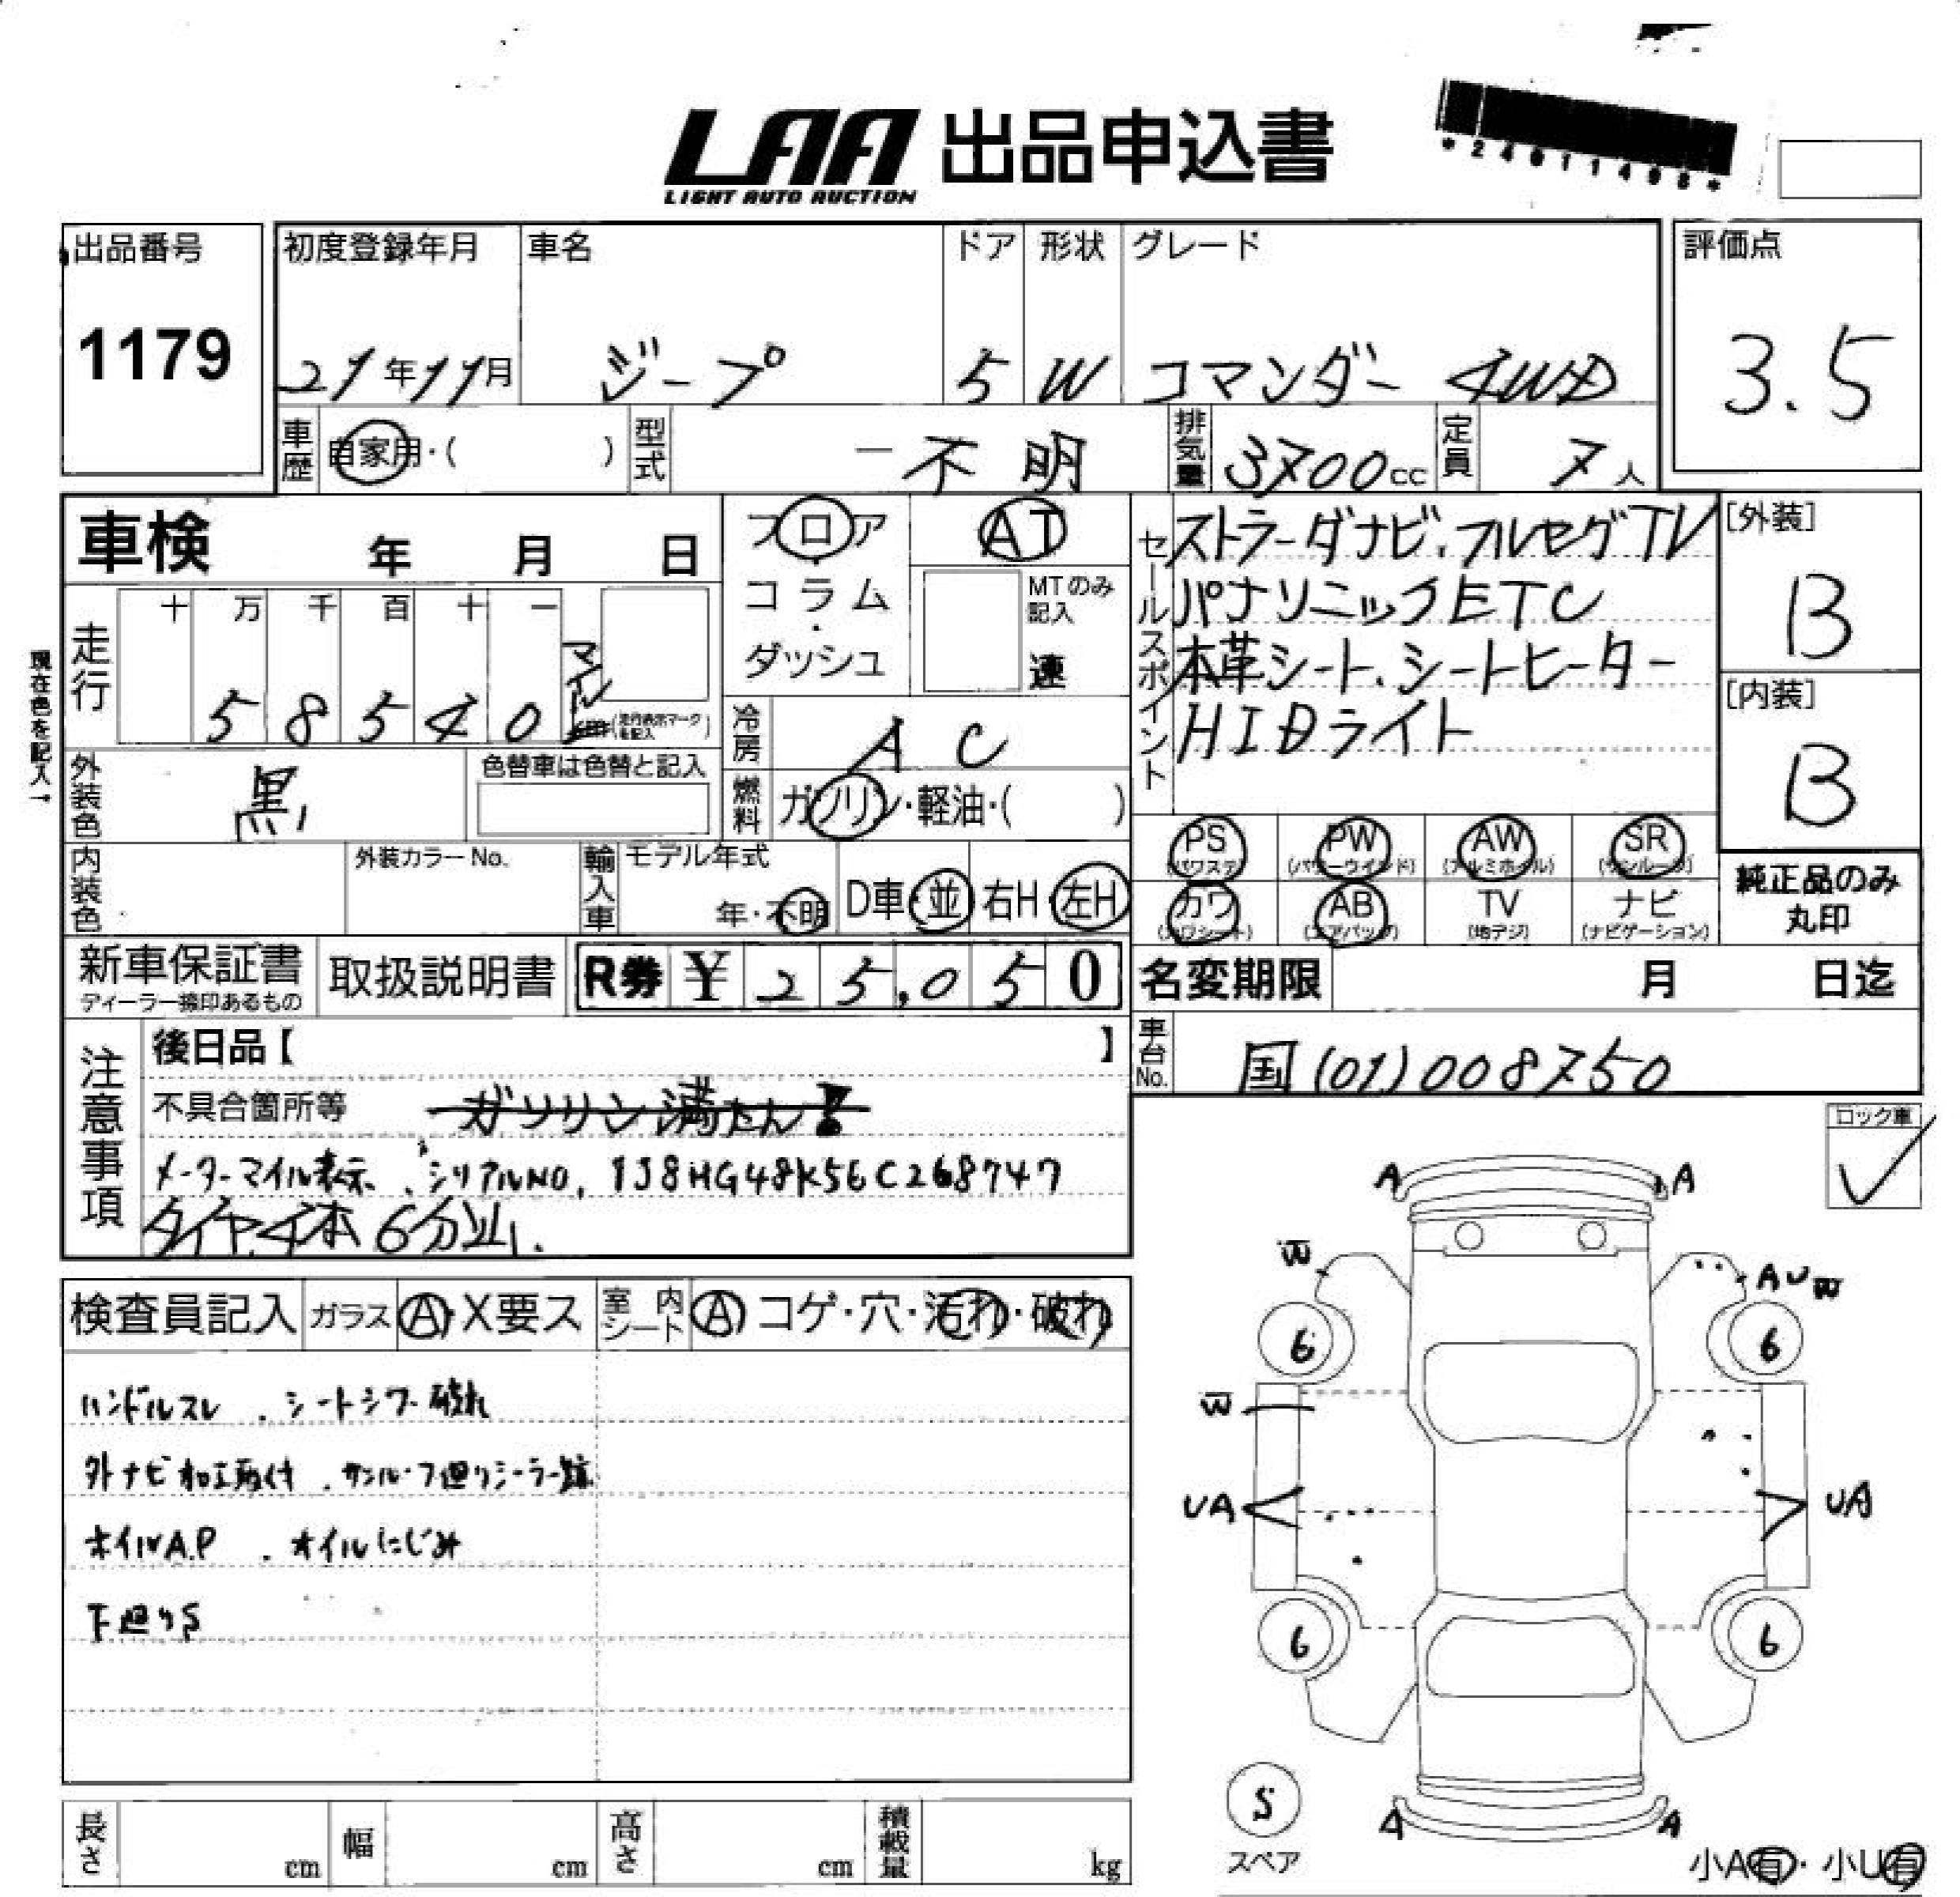 LAA 出品申込書
LIGHT AUTO AUCTION
*24011498*
出品番号
1179
初度登録年月 車名 ドア 形状 グレード
21年11月 ジープ 5 W コマンダー 4WD
評価点
3.5
車歴 自家用・( ) 型式 -不明 排気量 3700cc 定員 7人
車検 年 月 日
フロア
コラム
・
ダッシュ
AT
MTのみ記入
速
セールスポイント
ストラーダナビ、フルセグTV
パナソニックETC
本革シート、シートヒーター
HIDライト
[外装]
B
[内装]
B
現在色を記入→
走行 十 万 千 百 十 一
5 8 5 4 0 マイル
(走行表示マークを記入)
冷房 AC
燃料 ガソリン・軽油・( )
外装色 黒 色替車は色替と記入
内装色 外装カラーNo. 輸入車 モデル年式
年・不明 D車・並 右H・左H
PS (パワステ) PW (パワーウインド) AW (アルミホイル) SR (サンルーフ)
カワ (カワシート) AB (エアバッグ) TV (地デジ) ナビ (ナビゲーション)
純正品のみ
丸印
新車保証書
ディーラー捺印あるもの
取扱説明書 R券 ¥ 25,050
名変期限 月 日迄
車台No. 国(01)008750
注意事項
後日品【 】
不具合箇所等 ガソリン満たん
メーターマイル表示、シリアルNO. 1J8HG48K56C268747
タイヤ4本6分山.
ロック車
検査員記入 ガラス A・X要ス 室内シート A コゲ・穴・汚れ・破れ
ハンドルスレ、シートシワ・破れ
外ナビ加工取付、サンルーフ廻りシーラー跡
ホイルA.P、オイルにじみ
下廻りS
A A
W AUW
6 6
W
UA UA
6 6
S
スペア
A A
小A有・小U有
長さ cm 幅 cm 高さ cm 積載量 kg